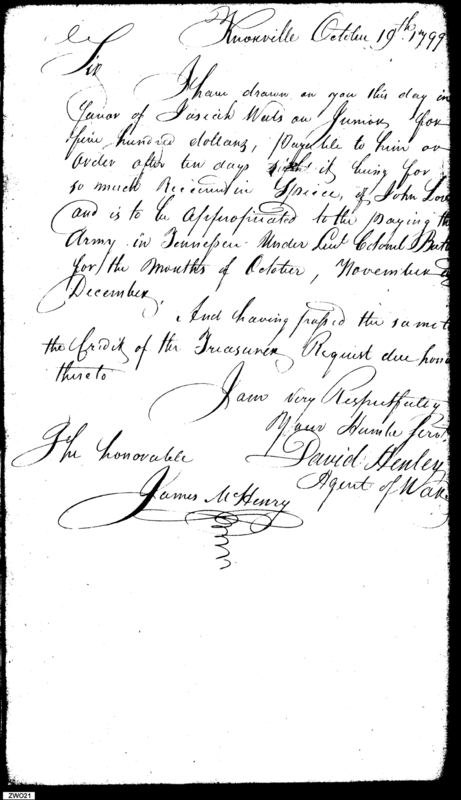 Knoxville October 19th. 1799
Sir
I have drawn on you this day in
favor of Josiah Watson Junior for
five hundred dollars, payable to him or
order after ten days sight it being for
so much Received in Specie, of John Love
and is to be appropriated to the paying the
Army in Tennessee Under Lieut. Colonel
for the Months of October, November
December,
And having passed the same
the Credit of the Treasurer Request due hono
thereto
I am Very Respectfuly
Your Humle Servt.
The honorable
David Henley
James McHenry
Agent of War
ZWO21